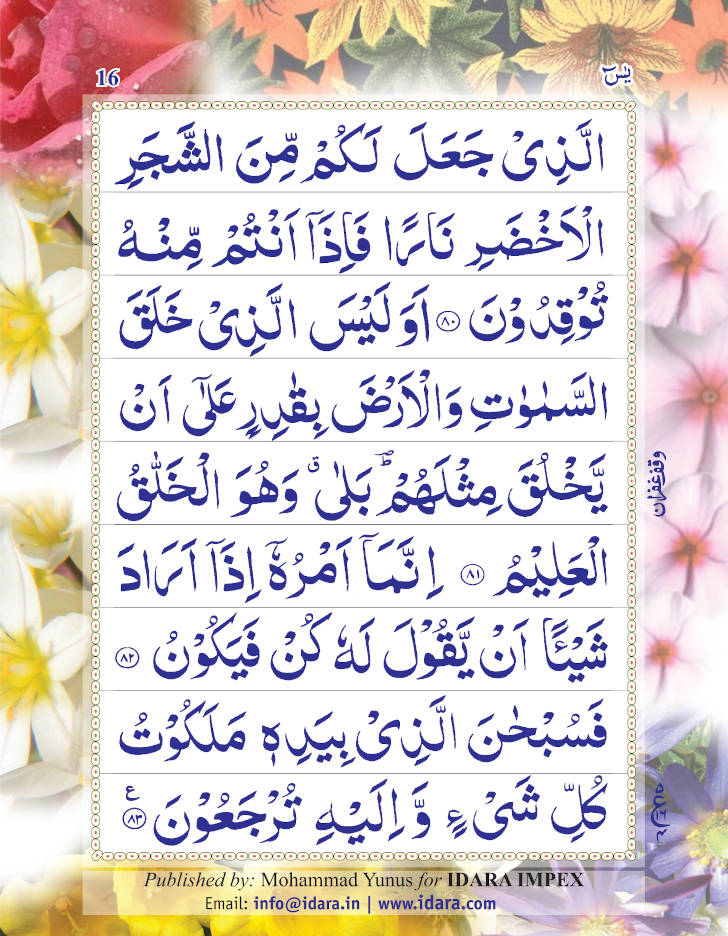 16
يٰسٓ
الَّذِىْ جَعَلَ لَكُمْ مِّنَ الشَّجَرِ
الْاَخْضَرِ نَارًا فَاِذَاۤ اَنْتُمْ مِّنْهُ
تُوْقِدُوْنَ ﴿۸۰﴾ اَوَ لَيْسَ الَّذِىْ خَلَقَ
السَّمٰوٰتِ وَالْاَرْضَ بِقٰدِرٍ عَلٰٓى اَنْ
يَّخْلُقَ مِثْلَهُمْ ؕ بَلٰى ۗ وَهُوَ الْخَلّٰقُ
وقف غفران
الْعَلِيْمُ ﴿۸۱﴾ اِنَّمَاۤ اَمْرُهٗۤ اِذَاۤ اَرَادَ
شَيْـًٔا اَنْ يَّقُوْلَ لَهٗ كُنْ فَيَكُوْنُ ﴿۸۲﴾
فَسُبْحٰنَ الَّذِىْ بِيَدِهٖ مَلَكُوْتُ
كُلِّ شَىْءٍ وَّ اِلَيْهِ تُرْجَعُوْنَ ﴿۸۳﴾ ع
Published by: Mohammad Yunus for IDARA IMPEX
Email: info@idara.in | www.idara.com